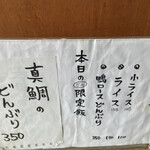 小ライス
ライス
鴨ロースどんぶり
本日の限定飯
真鯛の
どんぶり
350